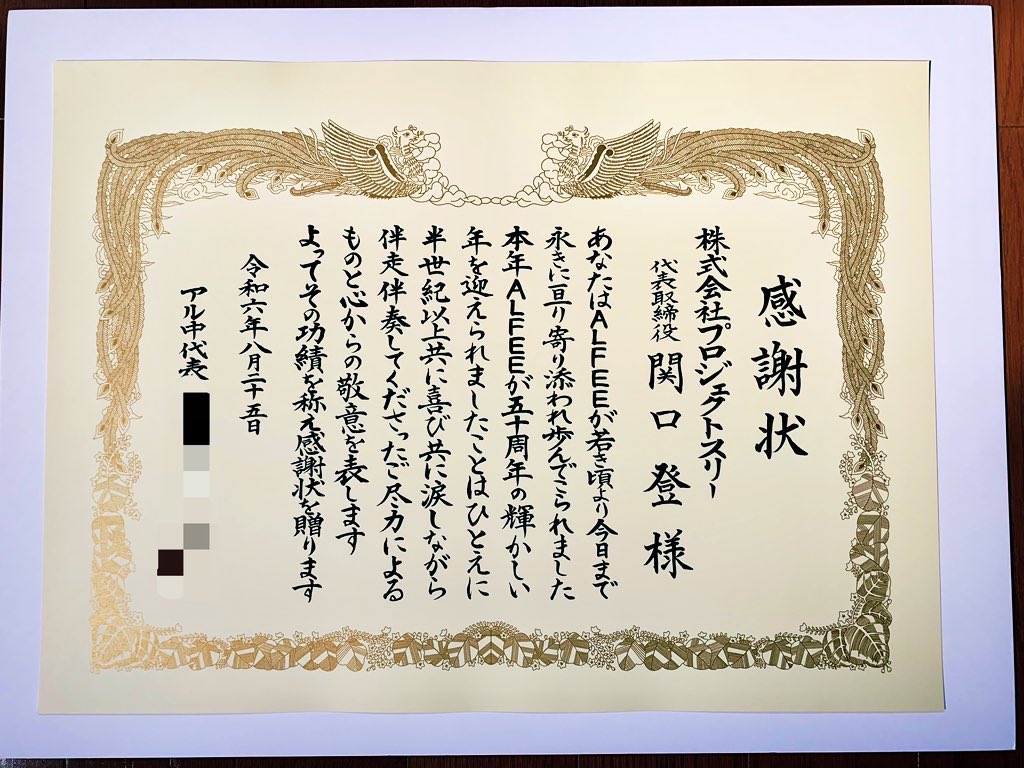 感謝状
株式会社プロジェクトスリー
代表取締役 関口 登 様
あなたはALFEEが若き頃より今日まで
永きに亘り寄り添われ歩んでこられました
本年ALFEEが五十周年の輝かしい
年を迎えられましたことはひとえに
半世紀以上共に喜び共に涙しながら
伴走伴奏してくださったご尽力による
ものと心からの敬意を表します
よってその功績を称え感謝状を贈ります
令和六年八月二十五日
アル中代表